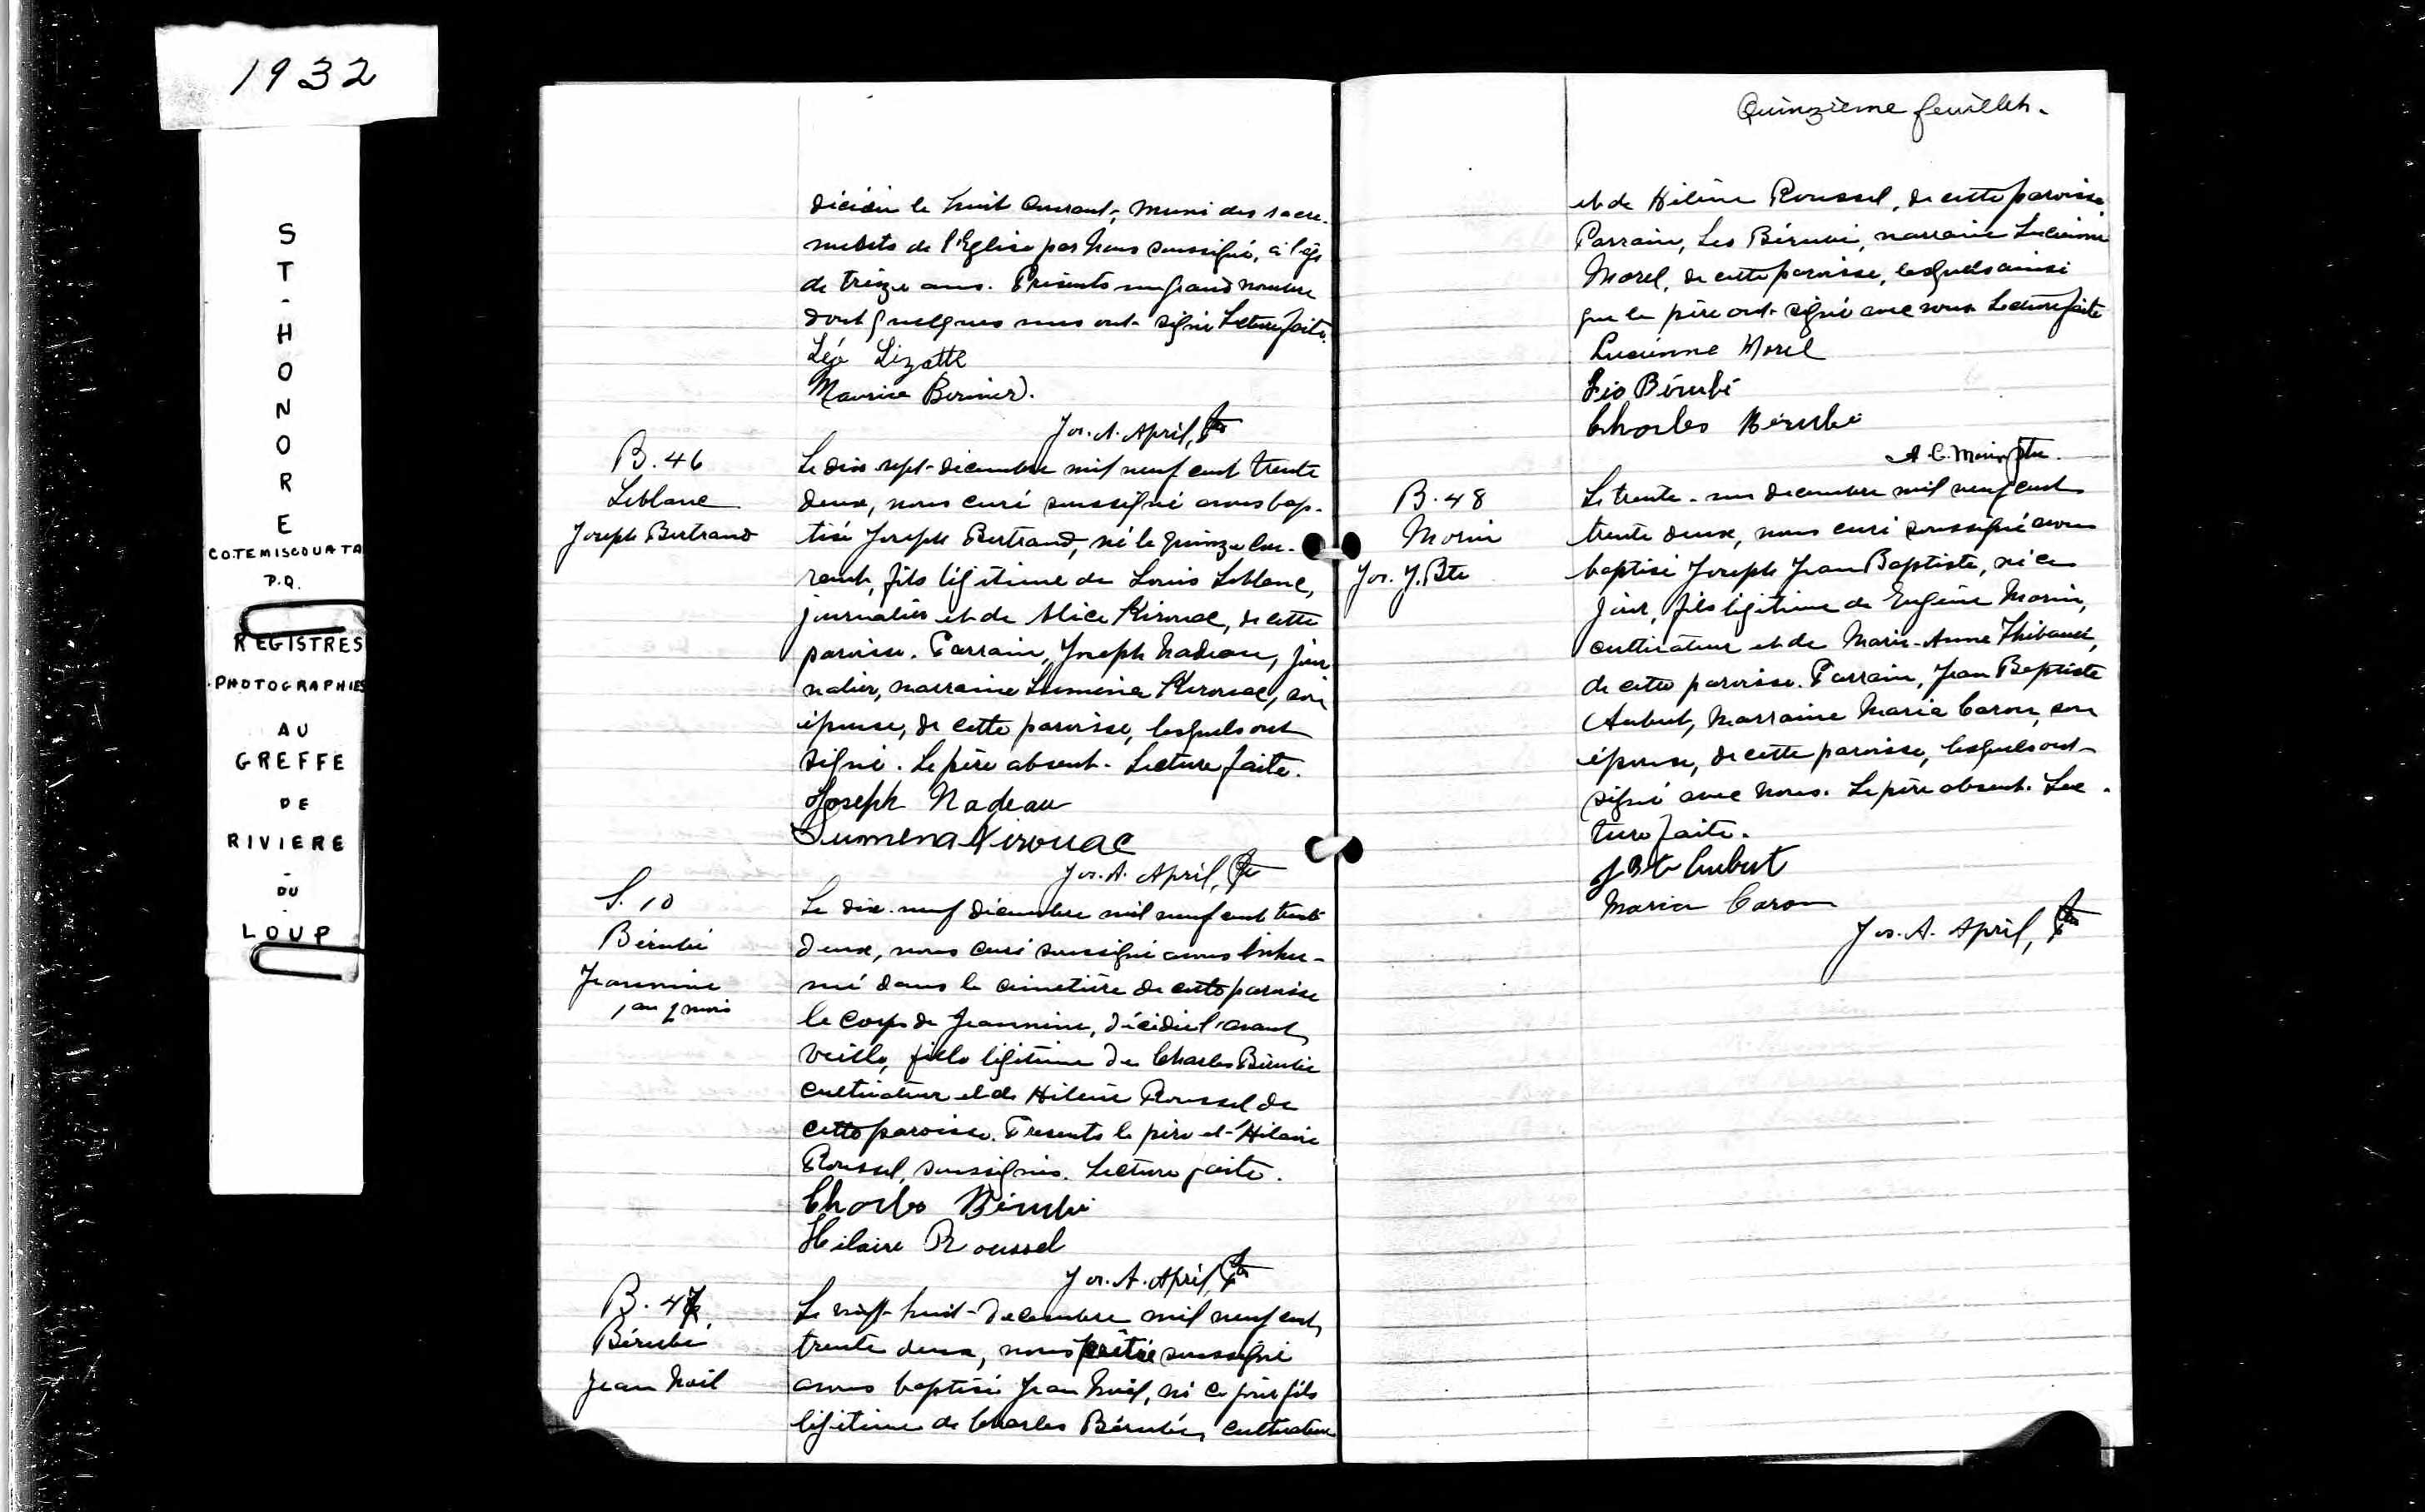 1932
ST-HONORE
CO.TEMISCOUATA
P.Q.
REGISTRES
PHOTOGRAPHIES
AU
GREFFE
DE
RIVIERE
-
DU
-
LOUP
décédé le huit courant, muni des sacre-
ments de l'Eglise par Nous soussigné, à l'âge
de treize ans. Présents un grand nombre
dont quelques uns ont signé Lecture faite.
Léo Lizotte
Maurice Bernier.
Jos. A. April, Ptre
B. 46
Leblanc
Joseph Bertrand
Le dix-sept-décembre mil neuf cent trente
deux, nous curé soussigné avons bap-
tisé Joseph Bertrand, né le quinze cou-
rant, fils légitime de Louis Leblanc,
journalier et de Alice Kirouac, de cette
paroisse. Parrain, Joseph Nadeau, jour
nalier, marraine Lumina Kirouac, son
épouse, de cette paroisse, lesquels ont
signé. Le père absent. Lecture faite.
Joseph Nadeau
Lumena Kirouac
Jos. A. April, Ptre
S. 10
Bérubé
Jeannine
1 an mois
Le dix-neuf décembre mil neuf cent trente
deux, nous curé soussigné avons inhu-
mé dans le cimetière de cette paroisse
le corps de Jeannine, décédée l'avant
veille, fille légitime de Charles Bérubé
cultivateur et de Hélène Roussel de
cette paroisse. Présents le père et Hilaire
Roussel, soussignés. Lecture faite.
Charles Bérubé
Hilaire Roussel
Jos. A. April, Ptre
B. 47
Bérubé
Jean Noël
Le vingt-huit-décembre mil neuf cent
trente deux, nous prêtre soussigné
avons baptisé Jean Noël, né ce jour fils
légitime de Charles Bérubé, cultivateur
Quinzième feuillet.
et de Hélène Roussel, de cette paroisse.
Parrain, Léo Bérubé, marraine Lucienne
Morel, de cette paroisse, lesquels ainsi
que le père ont signé avec nous Lecture faite
Lucienne Morel
Léo Bérubé
Charles Bérubé
A. C. Morin ptre.
B. 48
Morin
Jos. J. Bte
Le trente-un décembre mil neuf cent
trente deux, nous curé soussigné avons
baptisé Joseph Jean Baptiste, né ce
jour, fils légitime de Eugène Morin,
cultivateur et de Marie-Anne Thibault,
de cette paroisse. Parrain, Jean Baptiste
Aubut, Marraine Maria Caron, son
épouse, de cette paroisse, lesquels ont
signé avec nous. Le père absent. Lec-
ture faite.
J Bte Aubut
Maria Caron
Jos. A. April, Ptre